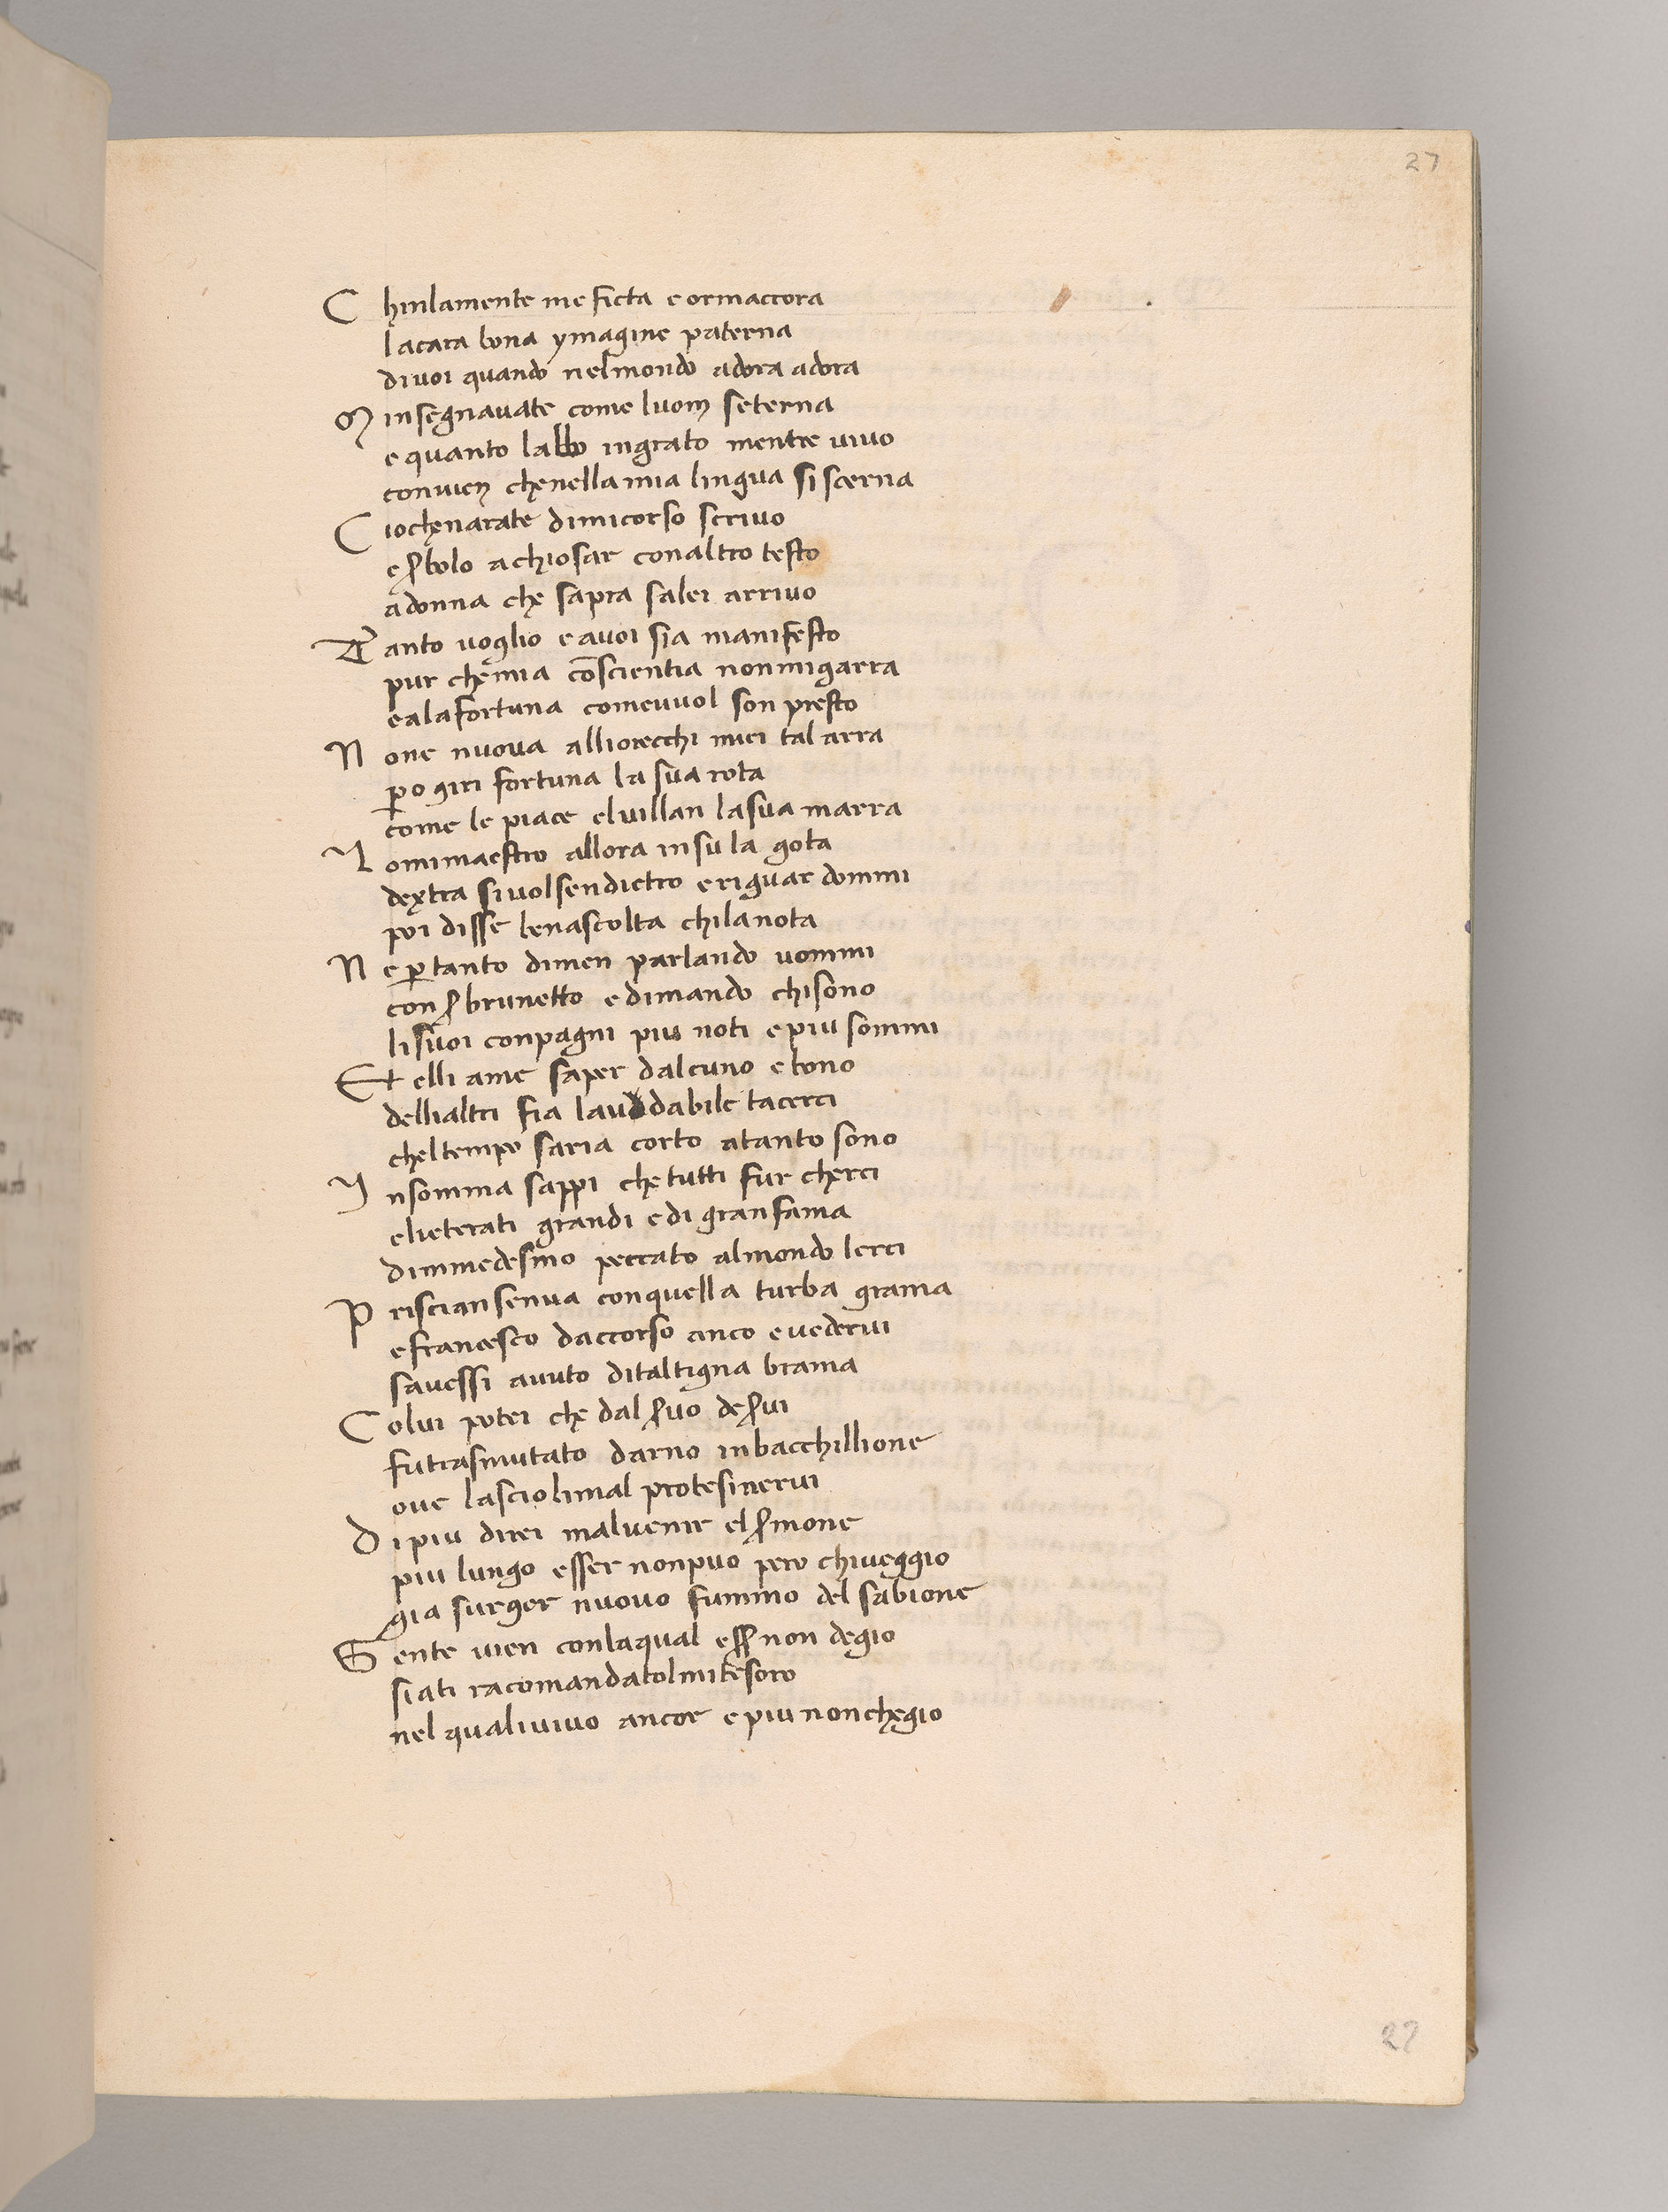 27
C hinlamente me ficta e ormaccora
lacara bona ymagine paterna
diuoi quando nelmondo adora adora
M insegnauate come luom seterna
e quanto labbo ingrato mentre uiuo
conuien chenella mia lingua si scerna
C iochenarate dimicorso scriuo
e ẜbolo a chiosar conaltro testo
adonna che sapra salei arriuo
T anto uoglio e auoi sia manifesto
pur chemia cōscientia nonmigarra
e ala fortuna comeuuol son presto
N one nuoua alliorecchi miei tal arra
ꝑo giri fortuna la sua rota
come le piace eluillan lasua marra
L omimaestro allora insu la gota
dextra siuolsendietro e riguardommi
poi disse benascolta chilanota
N e ꝑ tanto dimen parlando uommi
con ẜ brunetto e dimando chisono
lisuoi conpagni piu noti e piu sommi
Et elli ame saper dalcuno e bono
dellialtri fia lauddabile tacerci
cheltempo saria corto atanto sono
I nsomma sappi che tutti fur cherci
elieterati grandi e di gran fama
dimmedesmo peccato almondo lerci
P risciansenua conquella turba grama
e francesco daccorso anco e uederui
sauessi auuto dital tigna brama
C olui potei che dal ẜuo de ẜui
futrasmutato darno inbacchillione
oue lasciolimal protesinerui
D i piu direi maluenir el ẜmone
piu lungo esser nonpuo pero chiueggio
gia surger nuouo fummo del sabione
G ente uien conlaqual eẜẜ non degio
siati racomandatolmitesoro
nel qualiuiuo ancor e piu nonchegio
27